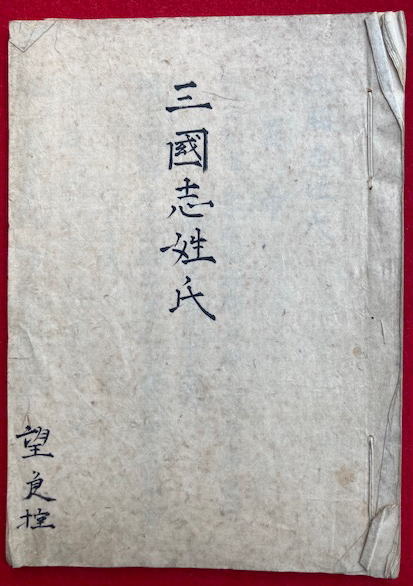 三國志姓氏
望良㙁